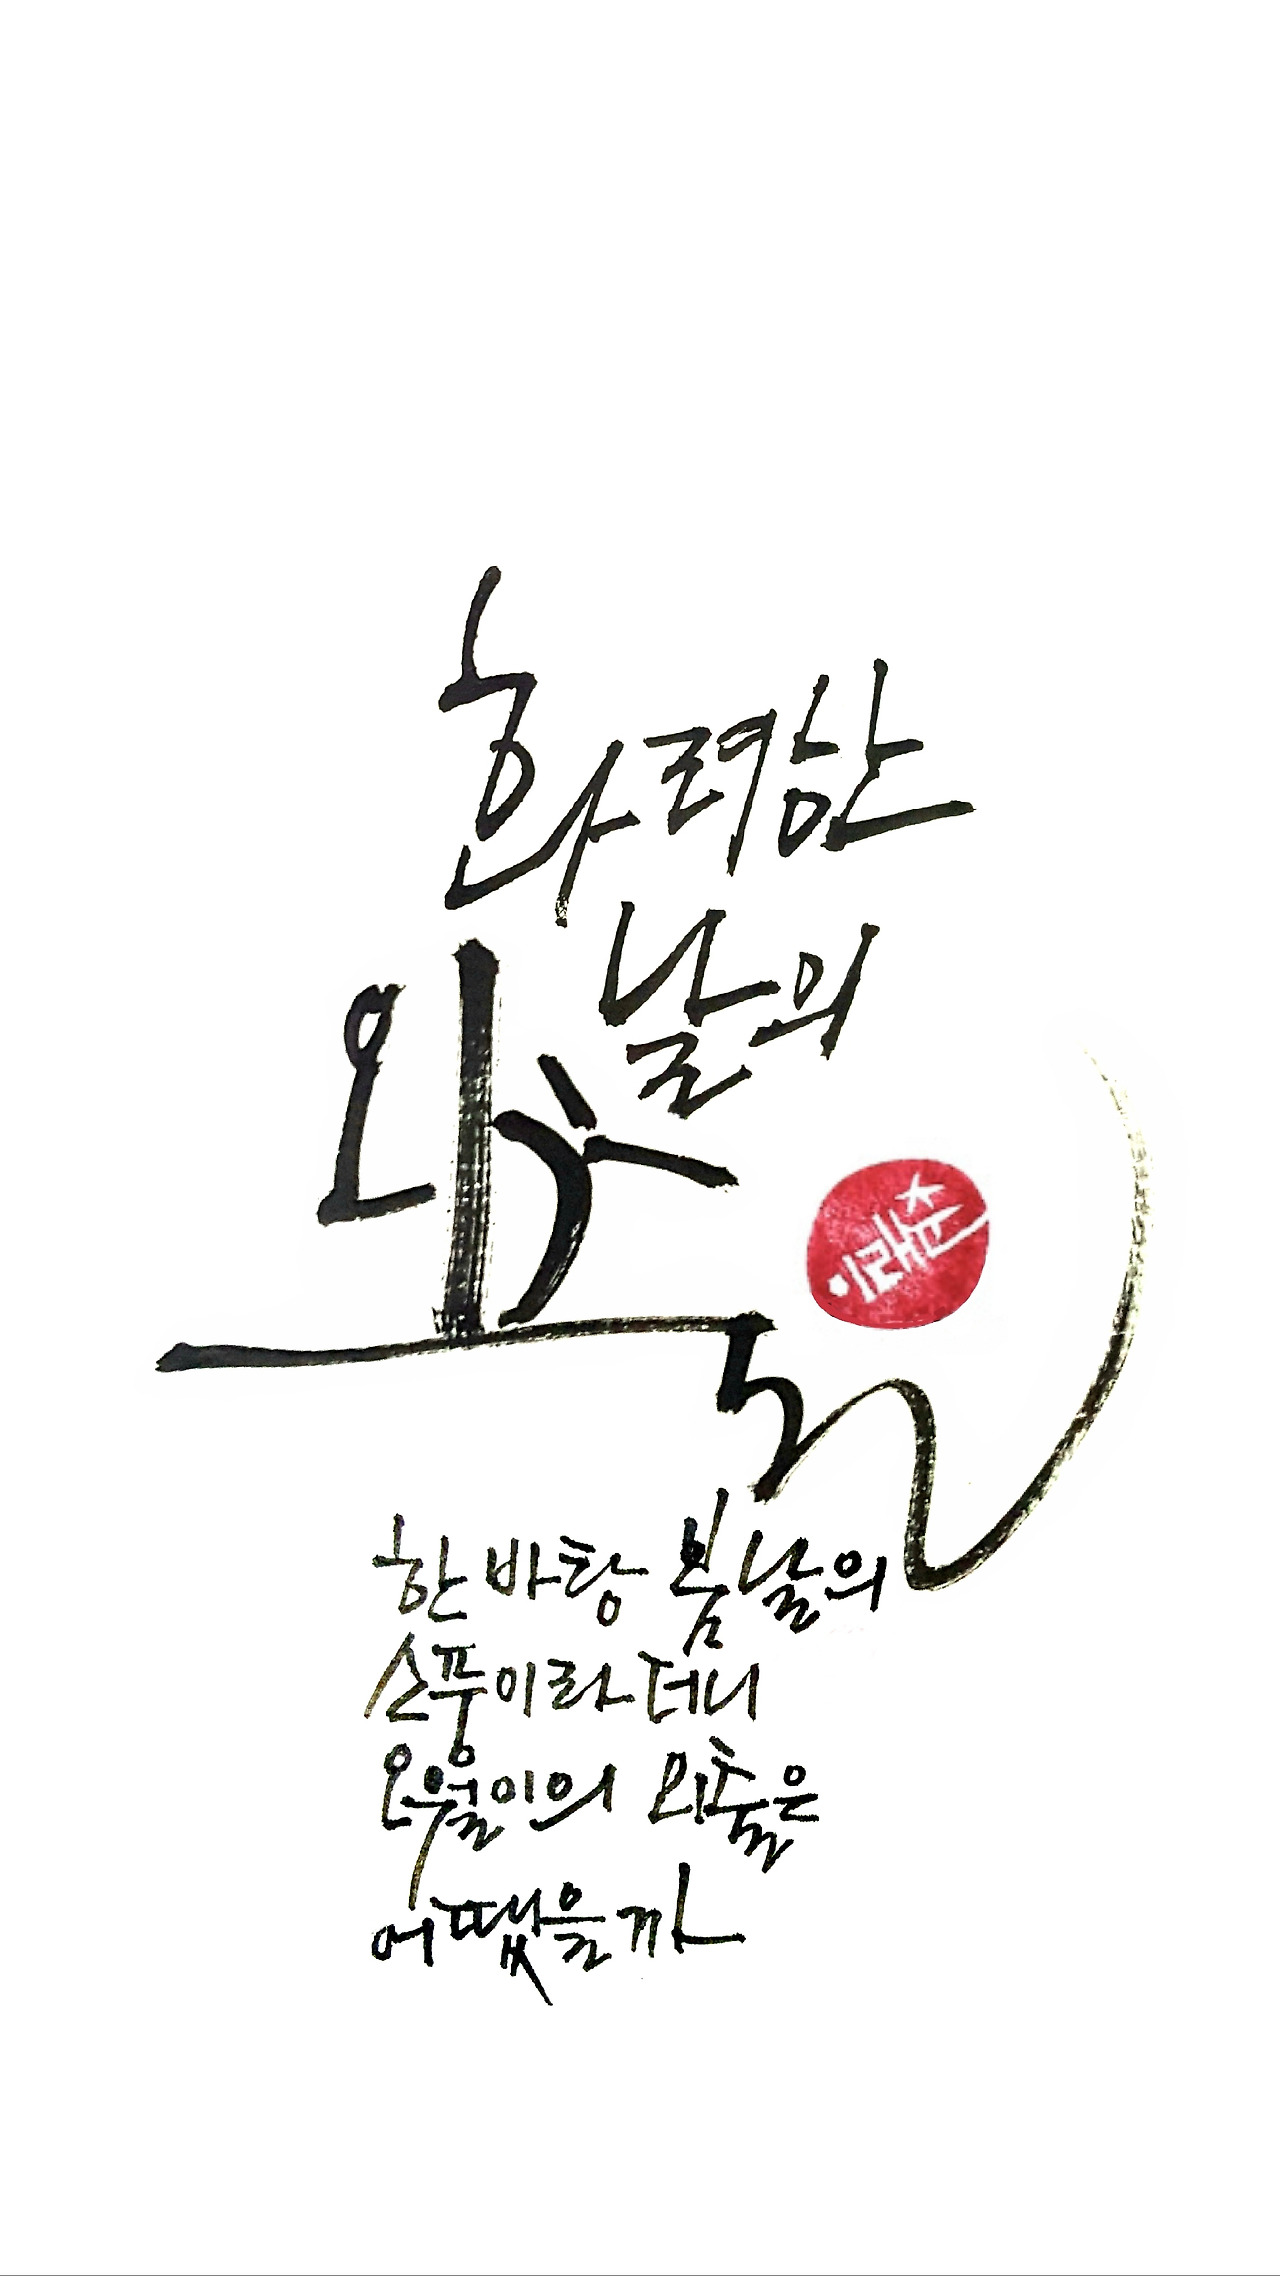 화려한
날의
외출
이래춘
한바탕 봄날의
소풍이라더니
오월이의 외출은
어땠을까